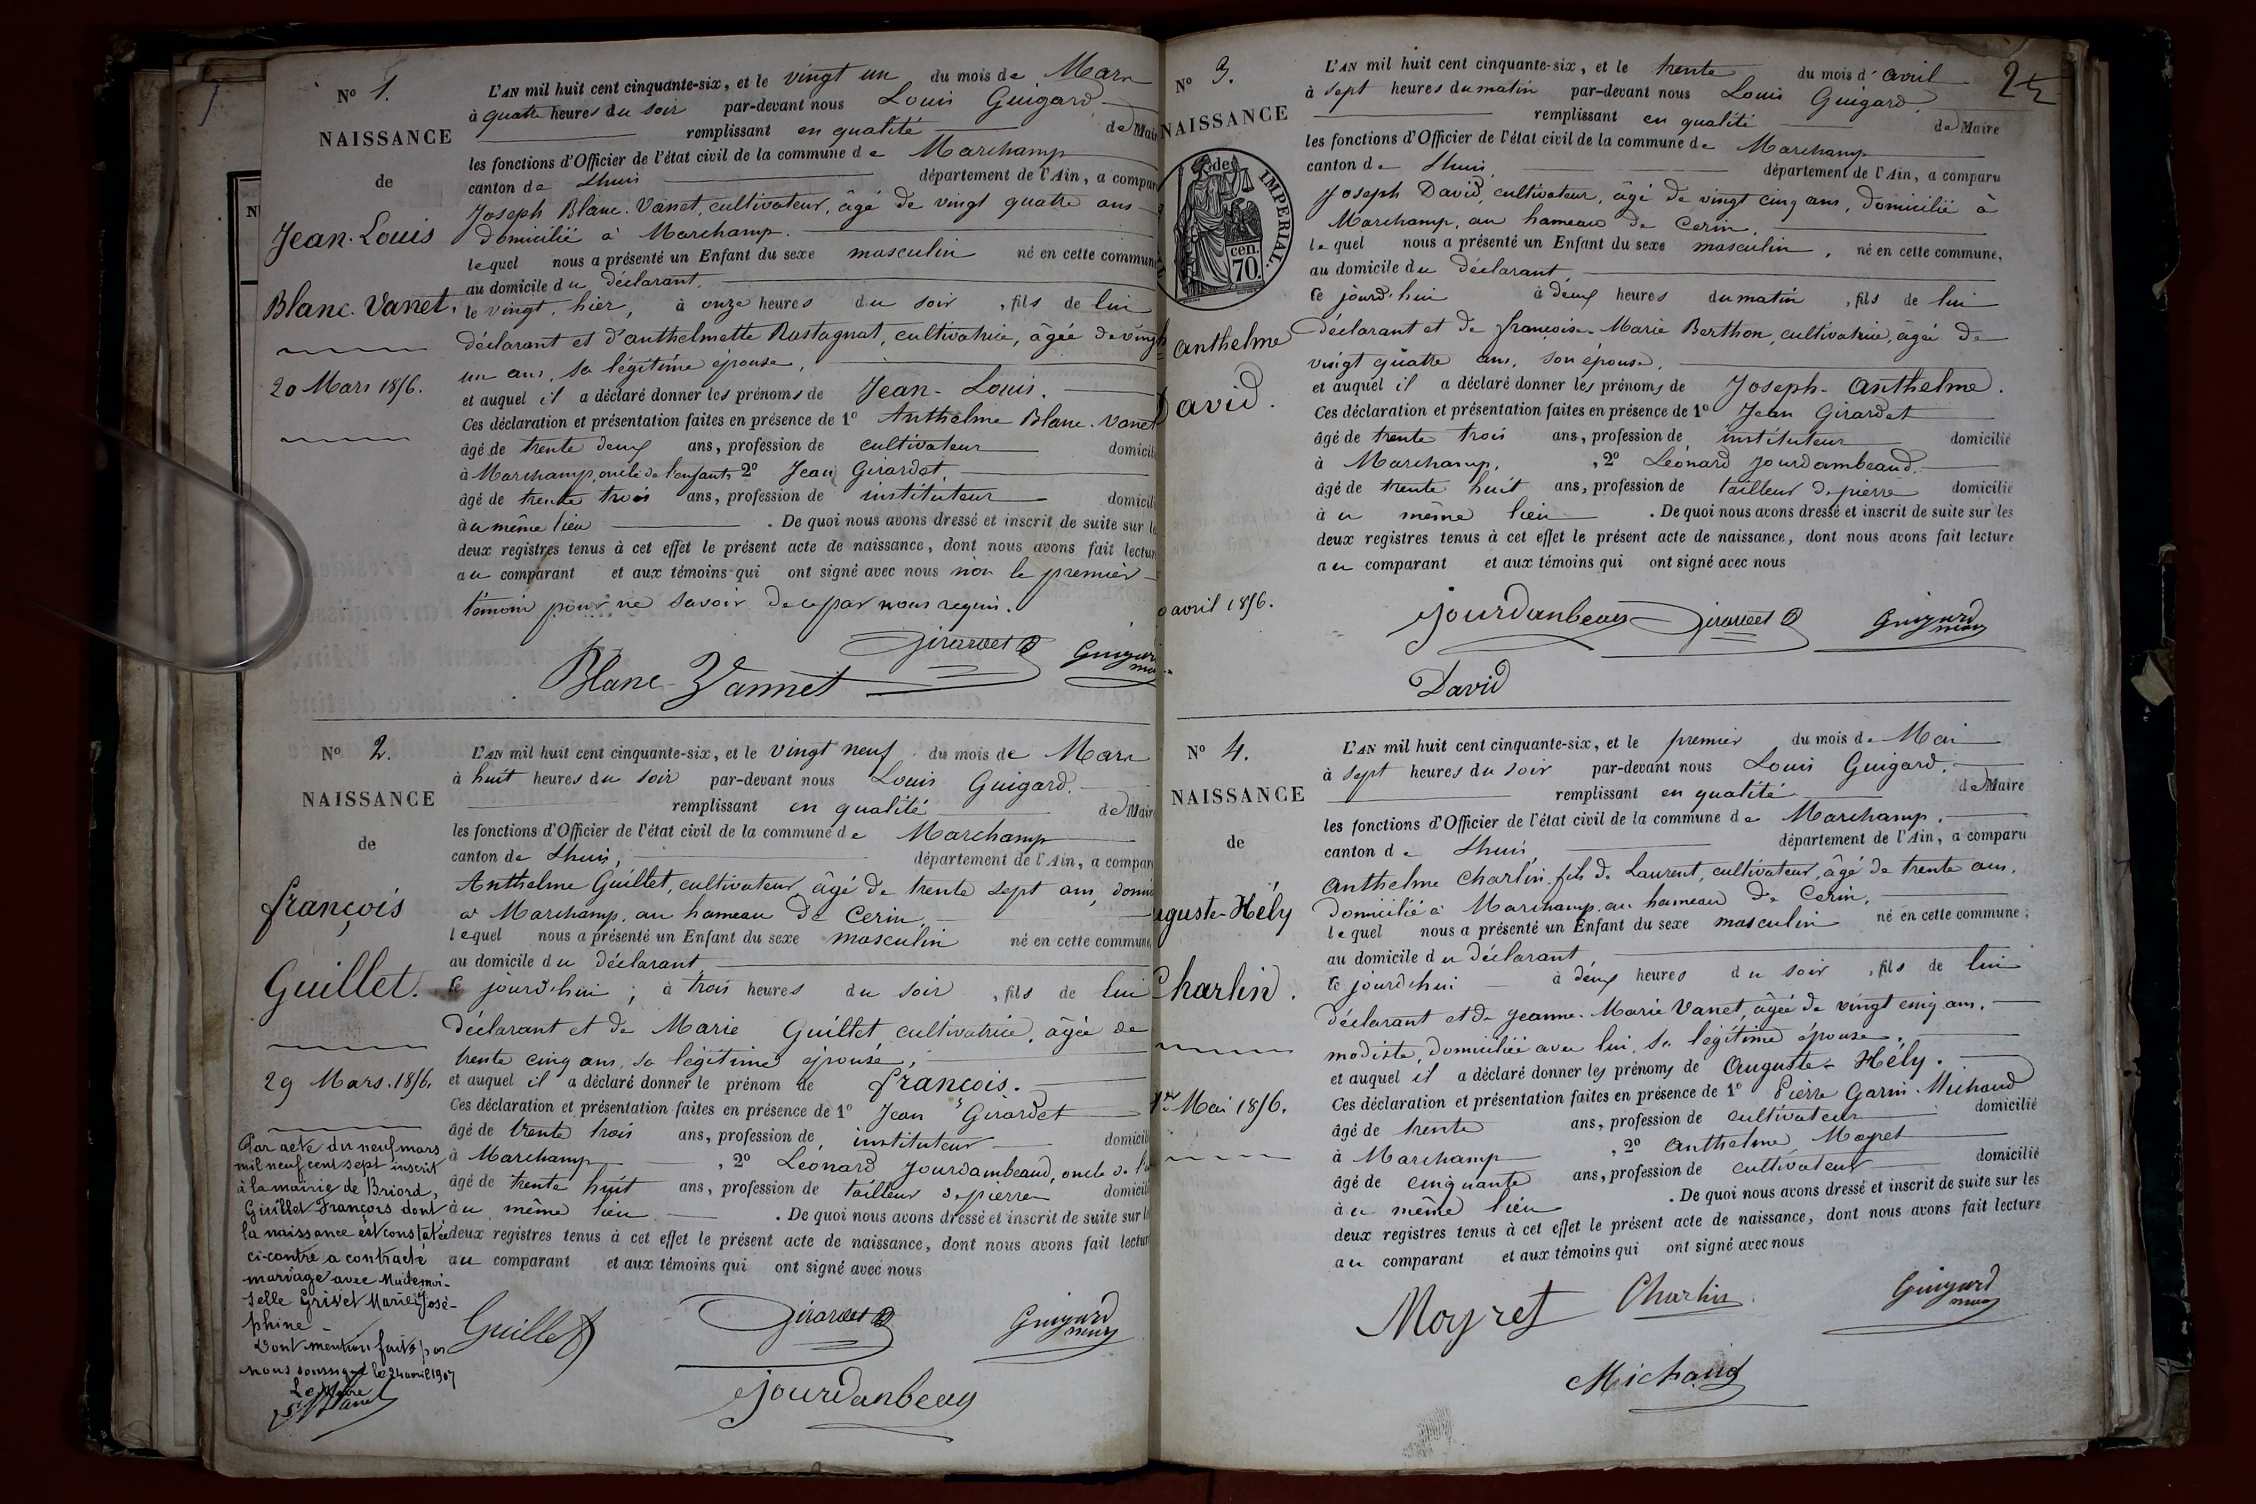 N° 1.
NAISSANCE
de
Jean-Louis
Blanc-Vanet.
20 Mars 1856.
L'AN mil huit cent cinquante-six, et le vingt un du mois de Mars
à quatre heures du soir par-devant nous Louis Guigard
remplissant en qualité de Mair
les fonctions d'Officier de l'état civil de la commune de Marchamp
canton de Lhuis département de l'Ain, a compar
Joseph Blanc-Vanet, cultivateur, âgé de vingt quatre ans
domicilié à Marchamp.
lequel nous a présenté un Enfant du sexe masculin né en cette commune
au domicile du déclarant.
le vingt, hier, à onze heures du soir, fils de lui
déclarant et d'anthelmette Rastagnat, cultivatrice, âgée de vingt
un ans, sa légitime épouse,
et auquel il a déclaré donner les prénoms de Jean-Louis.
Ces déclaration et présentation faites en présence de 1° Anthelme Blanc-Vanet
âgé de trente deux ans, profession de cultivateur domicili
à Marchamp, oncle de l'enfant, 2° Jean Girardet
âgé de trente trois ans, profession de instituteur domicili
au même lieu. De quoi nous avons dressé et inscrit de suite sur le
deux registres tenus à cet effet le présent acte de naissance, dont nous avons fait lectur
au comparant et aux témoins qui ont signé avec nous non le premier
témoin pour ne savoir de ce par nous requis.
Girardet Guigard
maire
Blanc-Vannet
N° 2.
NAISSANCE
de
françois
Guillet.
29 Mars 1856.
Par acte du neuf mars
mil neuf cent sept inscrit
à la mairie de Briord,
Guillet François dont
la naissance est constatée
ci-contre a contracté
mariage avec Mademoi-
selle Grivet Marie José-
phine
Dont mention faite par
nous soussigné le 24 avril 1907
Le Maire
L'AN mil huit cent cinquante-six, et le vingt neuf du mois de Mars
à huit heures du soir par-devant nous Louis Guigard.
remplissant en qualité de Maire
les fonctions d'Officier de l'état civil de la commune de Marchamp
canton de Lhuis, département de l'Ain, a compar
Anthelme Guillet, cultivateur âgé de trente sept ans, domi
à Marchamp, au hameau de Cerin,
lequel nous a présenté un Enfant du sexe masculin né en cette commune,
au domicile du déclarant
Ce jourd'hui, à trois heures du soir, fils de lui
déclarant et de Marie Guillet cultivatrice, âgée de
trente cinq ans, sa légitime épouse,
et auquel il a déclaré donner le prénom de françois.
Ces déclaration et présentation faites en présence de 1° Jean Girardet
âgé de trente trois ans, profession de instituteur domicili
à Marchamp, 2° Léonard Jourdambeaud, oncle de l'
âgé de trente huit ans, profession de tailleur de pierre domicili
au même lieu. De quoi nous avons dressé et inscrit de suite sur le
deux registres tenus à cet effet le présent acte de naissance, dont nous avons fait lectur
au comparant et aux témoins qui ont signé avec nous
Guillet Girardet Guigard
maire
Jourdanbeau
N° 3.
NAISSANCE
de
IMPERIAL.
cen.
70.
anthelme
David.
avril 1856.
25
L'AN mil huit cent cinquante-six, et le trente du mois d'avril
à sept heures du matin par-devant nous Louis Guigard
remplissant en qualité de Maire
les fonctions d'Officier de l'état civil de la commune de Marchamp
canton de Lhuis département de l'Ain, a comparu
Joseph David, cultivateur, âgé de vingt cinq ans, domicilié à
Marchamp, au hameau de Cerin,
lequel nous a présenté un Enfant du sexe masculin, né en cette commune,
au domicile du déclarant,
Ce jourd'hui à deux heures du matin, fils de lui
déclarant et de françoise-Marie Berthon, cultivatrice, âgée de
vingt quatre ans, son épouse,
et auquel il a déclaré donner les prénoms de Joseph-Anthelme.
Ces déclaration et présentation faites en présence de 1° Jean Girardet
âgé de trente trois ans, profession de instituteur domicilié
à Marchamp, 2° Léonard Jourdambeaud,
âgé de trente huit ans, profession de tailleur de pierre domicilié
au même lieu. De quoi nous avons dressé et inscrit de suite sur les
deux registres tenus à cet effet le présent acte de naissance, dont nous avons fait lecture
au comparant et aux témoins qui ont signé avec nous
Jourdanbeau Girardet Guigard
maire
David
N° 4.
NAISSANCE
de
uguste-Hély
Charlin.
1er Mai 1856.
L'AN mil huit cent cinquante-six, et le premier du mois de Mai
à sept heures du soir par-devant nous Louis Guigard,
remplissant en qualité de Maire
les fonctions d'Officier de l'état civil de la commune de Marchamp,
canton de Lhuis département de l'Ain, a comparu
Anthelme Charlin, fils de Laurent, cultivateur, âgé de trente ans,
domicilié à Marchamp, au hameau de Cerin,
lequel nous a présenté un Enfant du sexe masculin né en cette commune;
au domicile du déclarant
Ce jourd'hui à deux heures du soir, fils de lui
déclarant et de Jeanne-Marie Vanet, âgée de vingt cinq ans,
modiste, domiciliée avec lui, sa légitime épouse,
et auquel il a déclaré donner les prénoms de Auguste-Hély.
Ces déclaration et présentation faites en présence de 1° Pierre Garin-Michaud
âgé de trente ans, profession de cultivateur domicilié
à Marchamp, 2° Anthelme Moyret
âgé de cinquante ans, profession de cultivateur domicilié
au même lieu. De quoi nous avons dressé et inscrit de suite sur les
deux registres tenus à cet effet le présent acte de naissance, dont nous avons fait lecture
au comparant et aux témoins qui ont signé avec nous
Moyret Charlin Guigard
maire
Michaud